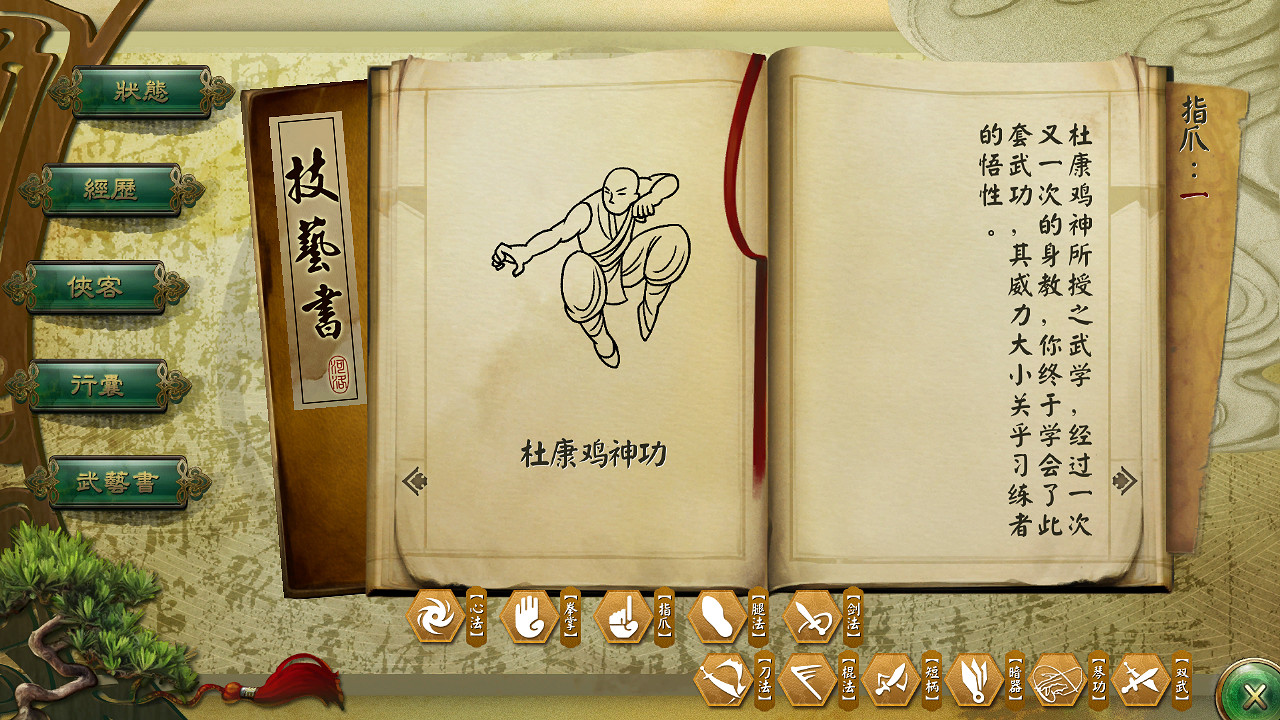 狀態
經歷
俠客
行囊
武藝書
技藝書
河洛
杜康鸡神功
指爪：一
杜康鸡神所授之武学，经过一次
又一次的身教，你终于学会了此
套武功，其威力大小关乎习练者
的悟性。
【心法】
【拳掌】
【指爪】
【腿法】
【剑法】
【刀法】
【棍法】
【短柄】
【暗器】
【琴功】
【双武】